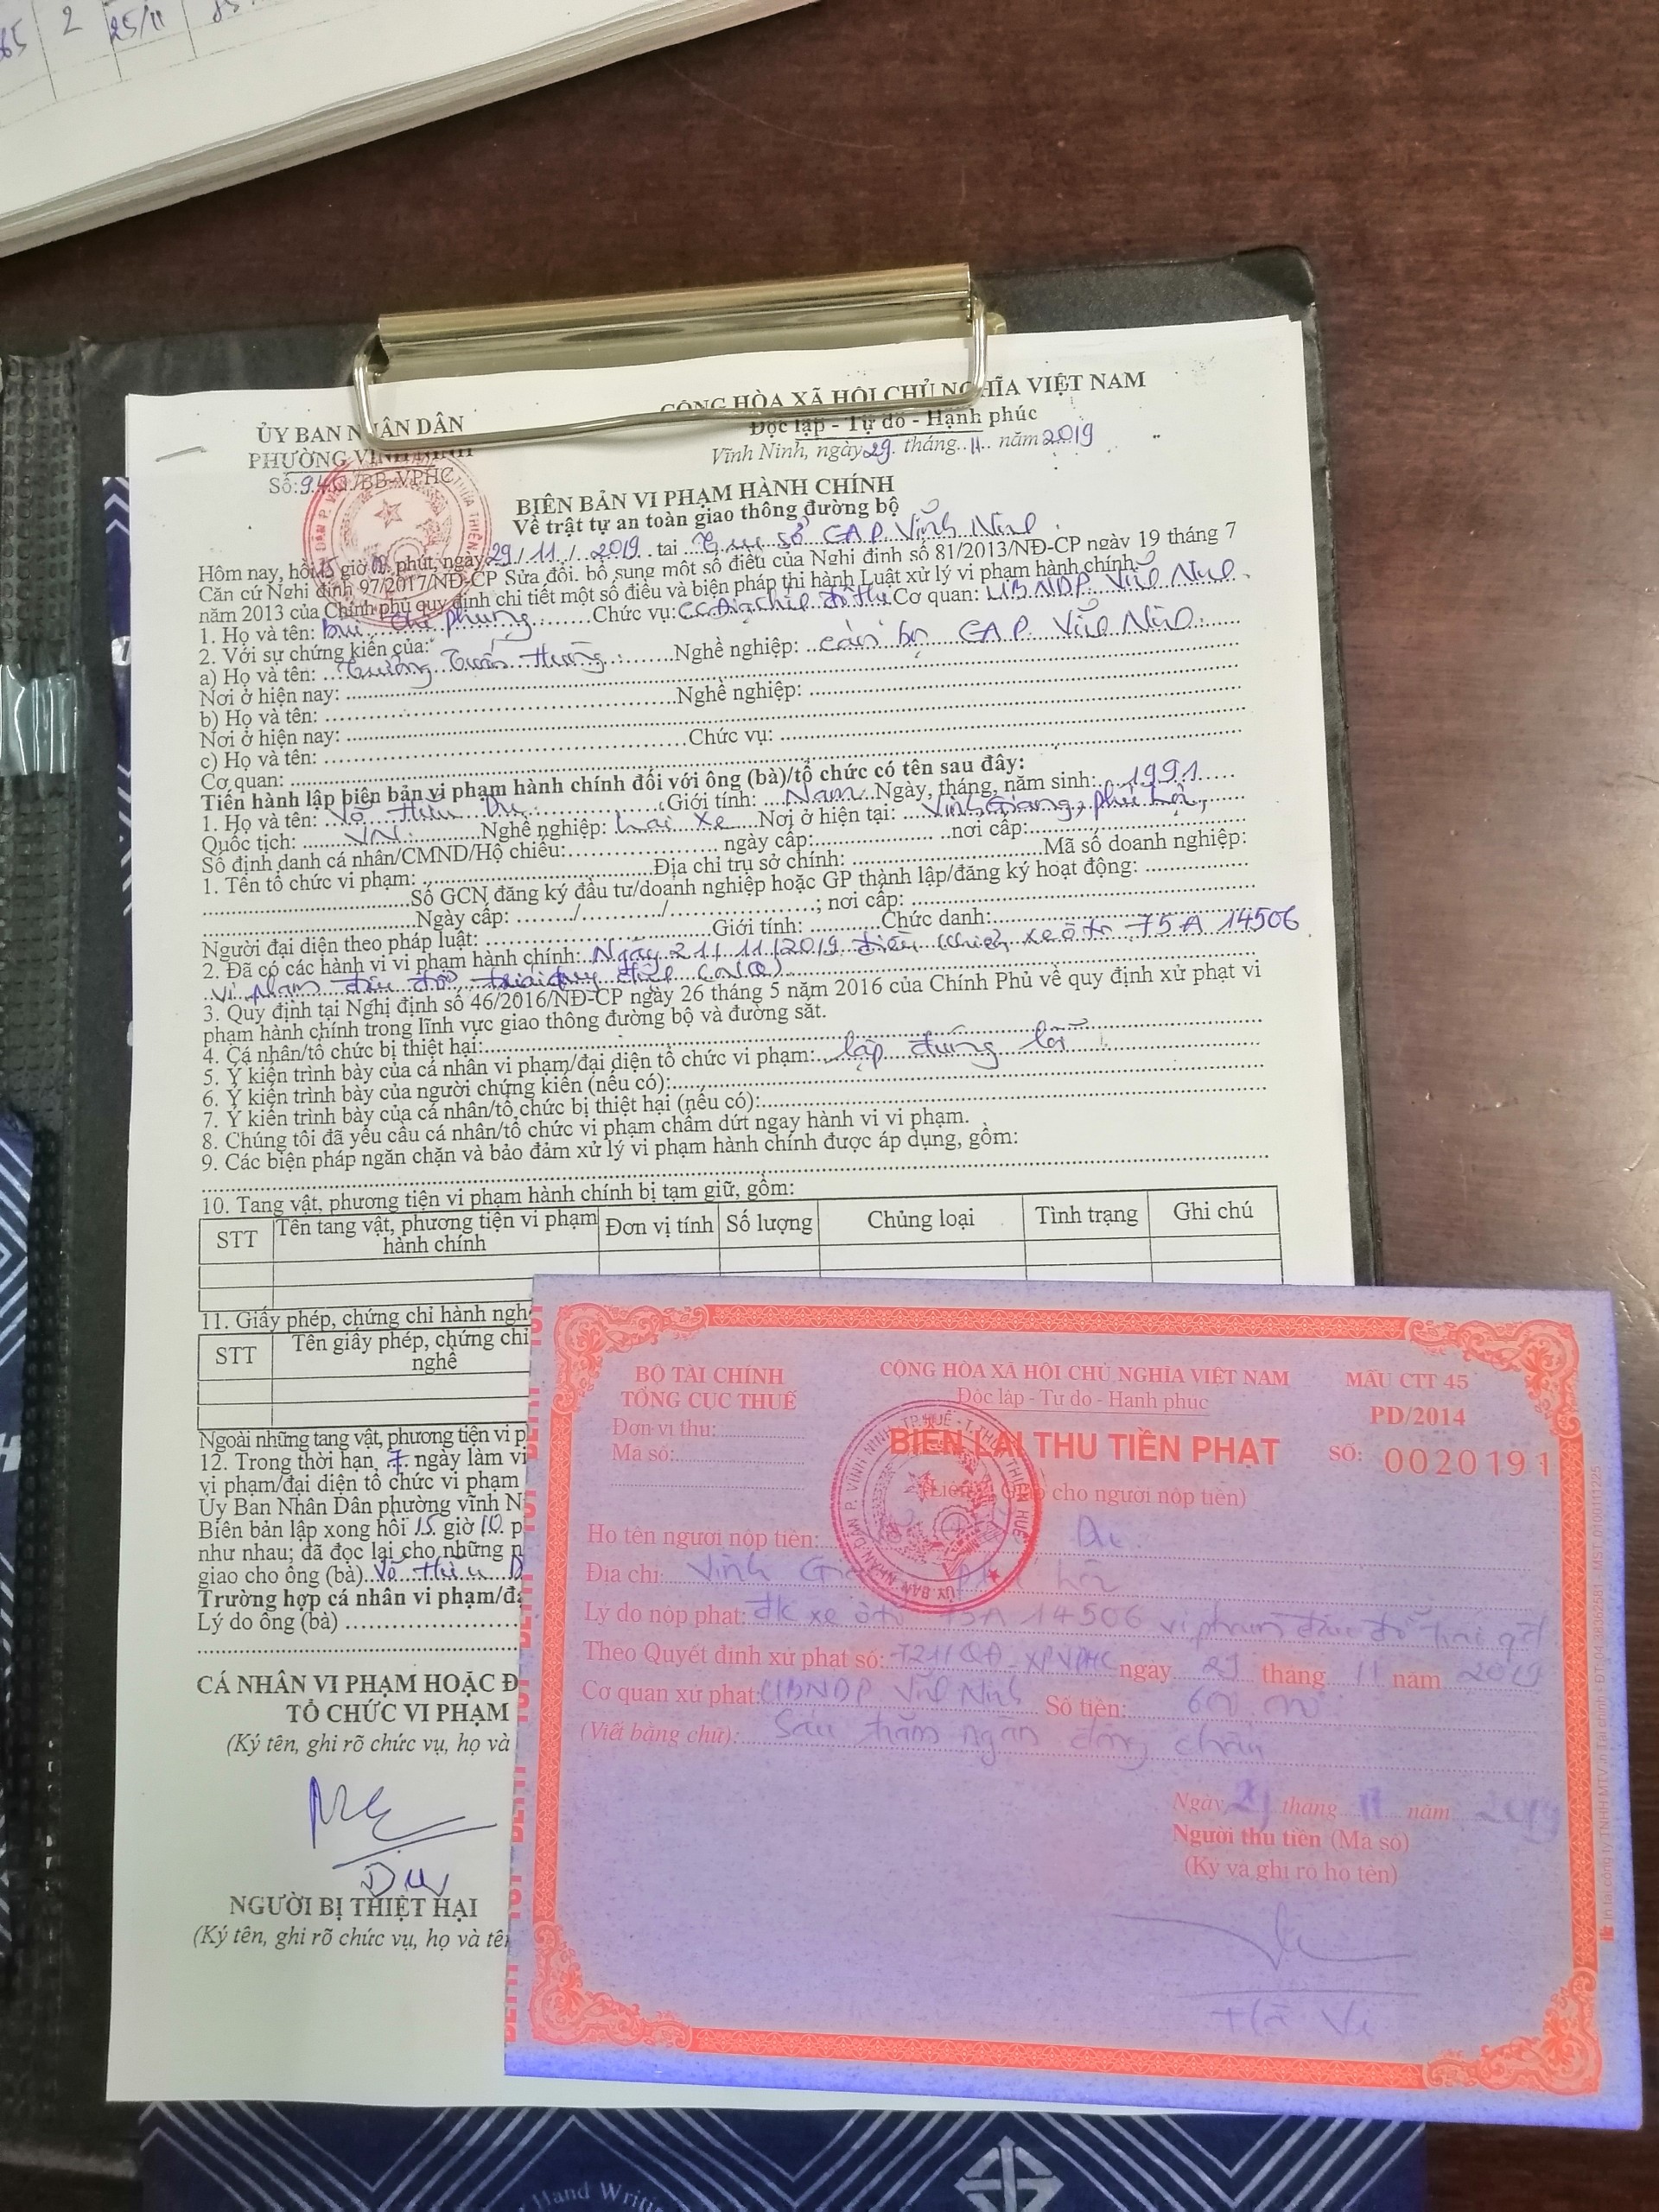 65 2 25/11
ỦY BAN NHÂN DÂN
PHƯỜNG VĨNH NINH
Số: /BB-VPHC
CỘNG HÒA XÃ HỘI CHỦ NGHĨA VIỆT NAM
Độc lập - Tự do - Hạnh phúc
Vĩnh Ninh, ngày 29 tháng 11 năm 2019
BIÊN BẢN VI PHẠM HÀNH CHÍNH
Về trật tự an toàn giao thông đường bộ
Hôm nay, hồi 15 giờ phút, ngày 29/11/2019 tại Trụ sở CAP Vĩnh Ninh
Căn cứ Nghị định 97/2017/NĐ-CP Sửa đổi, bổ sung một số điều của Nghị định số 81/2013/NĐ-CP ngày 19 tháng 7
năm 2013 của Chính phủ quy định chi tiết một số điều và biện pháp thi hành Luật xử lý vi phạm hành chính.
1. Họ và tên: Bùi Chí Phụng Chức vụ: Cơ quan: UBNDP. Vĩnh Ninh
2. Với sự chứng kiến của:
a) Họ và tên: Trương Tuấn Hưng Nghề nghiệp: cán bộ CAP. Vĩnh Ninh
Nơi ở hiện nay:
b) Họ và tên: Nghề nghiệp:
Nơi ở hiện nay:
c) Họ và tên: Chức vụ:
Cơ quan:
Tiến hành lập biên bản vi phạm hành chính đối với ông (bà)/tổ chức có tên sau đây:
1. Họ và tên: Võ Hữu Du Giới tính: Nam Ngày, tháng, năm sinh: 1991
Quốc tịch: VN Nghề nghiệp: Lái xe Nơi ở hiện tại: Vinh Giang, phú lộc,
Số định danh cá nhân/CMND/Hộ chiếu: ngày cấp: nơi cấp:
1. Tên tổ chức vi phạm: Địa chỉ trụ sở chính: Mã số doanh nghiệp:
Số GCN đăng ký đầu tư/doanh nghiệp hoặc GP thành lập/đăng ký hoạt động:
Ngày cấp: / / ; nơi cấp:
Người đại diện theo pháp luật: Giới tính: Chức danh:
2. Đã có các hành vi vi phạm hành chính: Ngày 21/11/2019 điều khiển xe ô tô 75A 14506
vi phạm đậu đỗ trái quy định
3. Quy định tại Nghị định số 46/2016/NĐ-CP ngày 26 tháng 5 năm 2016 của Chính Phủ về quy định xử phạt vi
phạm hành chính trong lĩnh vực giao thông đường bộ và đường sắt.
4. Cá nhân/tổ chức bị thiệt hại:
5. Ý kiến trình bày của cá nhân vi phạm/đại diện tổ chức vi phạm: lập đúng lỗi
6. Ý kiến trình bày của người chứng kiến (nếu có):
7. Ý kiến trình bày của cá nhân/tổ chức bị thiệt hại (nếu có):
8. Chúng tôi đã yêu cầu cá nhân/tổ chức vi phạm chấm dứt ngay hành vi vi phạm.
9. Các biện pháp ngăn chặn và bảo đảm xử lý vi phạm hành chính được áp dụng, gồm:
10. Tang vật, phương tiện vi phạm hành chính bị tạm giữ, gồm:
STT Tên tang vật, phương tiện vi phạm hành chính Đơn vị tính Số lượng Chủng loại Tình trạng Ghi chú
11. Giấy phép, chứng chỉ hành ngh
STT Tên giấy phép, chứng chỉ
nghề
Ngoài những tang vật, phương tiện vi p
12. Trong thời hạn 7 ngày làm vi
vi phạm/đại diện tổ chức vi phạm
Ủy Ban Nhân Dân phường vĩnh N
Biên bản lập xong hồi 15 giờ 10 p
như nhau; đã đọc lại cho những n
giao cho ông (bà) Võ Hữu D
Trường hợp cá nhân vi phạm/đạ
Lý do ông (bà)
CÁ NHÂN VI PHẠM HOẶC Đ
TỔ CHỨC VI PHẠM
(Ký tên, ghi rõ chức vụ, họ và
Du
NGƯỜI BỊ THIỆT HẠI
(Ký tên, ghi rõ chức vụ, họ và tên
BỘ TÀI CHÍNH
TỔNG CỤC THUẾ
Đơn vị thu:
Mã số:
CỘNG HÒA XÃ HỘI CHỦ NGHĨA VIỆT NAM
Độc lập - Tự do - Hạnh phúc
MẪU CTT 45
PD/2014
BIÊN LAI THU TIỀN PHẠT
SỐ: 0020191
(Liên Giao cho người nộp tiền)
Họ tên người nộp tiền: Du
Địa chỉ: Vinh Giang phú lộc
Lý do nộp phạt: đk xe ôtô 75A 14506 vi phạm đậu đỗ trái qđ
Theo Quyết định xử phạt số: QĐ-XPVPHC ngày 29 tháng 11 năm 2019
Cơ quan xử phạt: UBNDP Vĩnh Ninh Số tiền: 600.000
(Viết bằng chữ): Sáu trăm ngàn đồng chẵn
Ngày 29 tháng 11 năm 2019
Người thu tiền (Mã số)
(Ký và ghi rõ họ tên)
Hand Writi